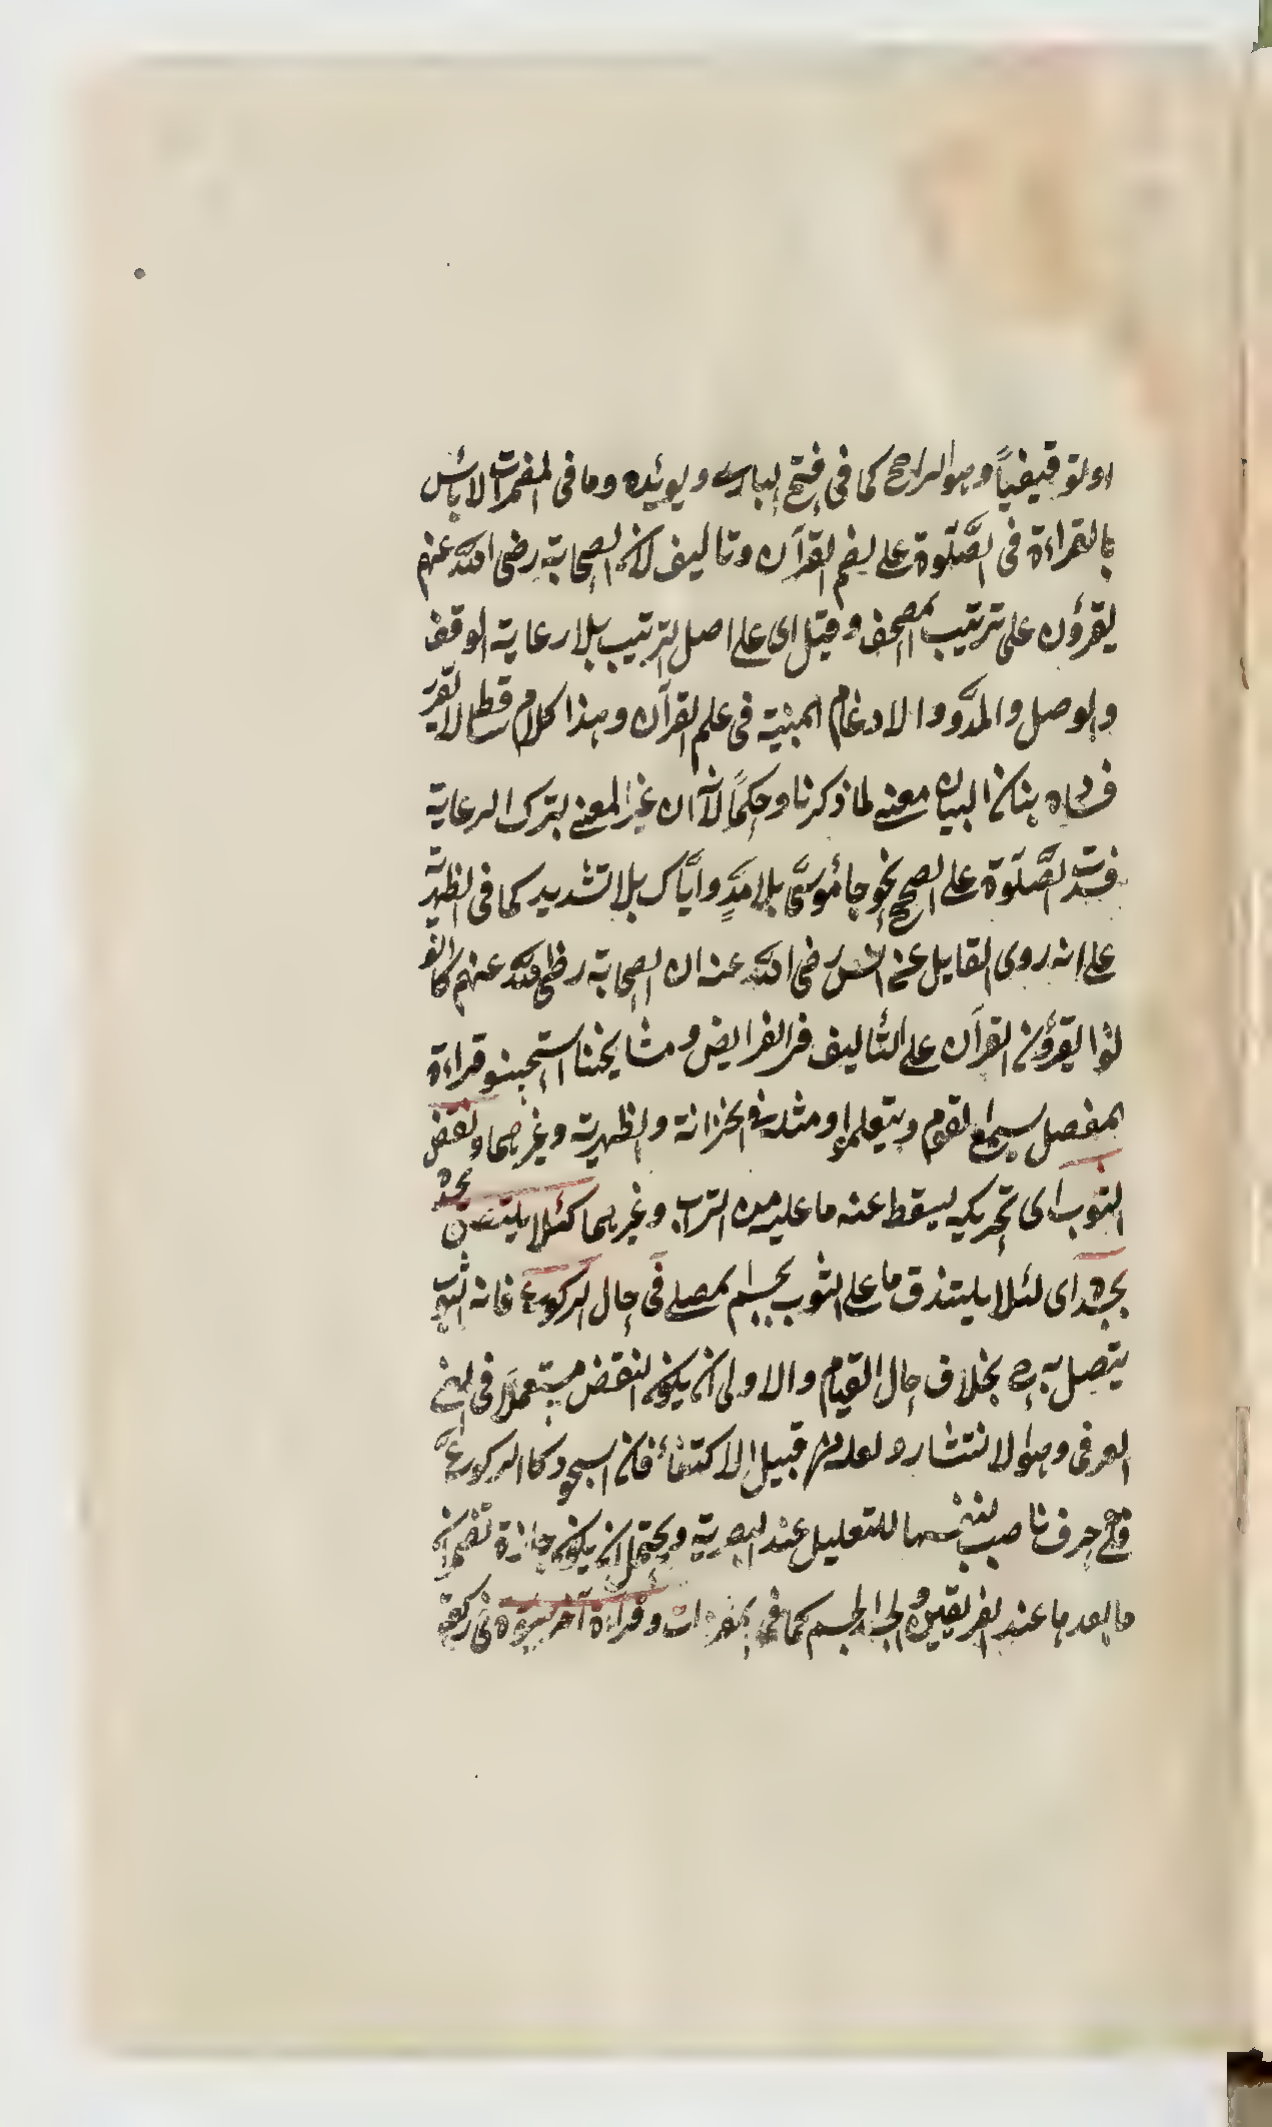 او لتوقيفياً وهو الراجح كما في فتح الباري ويؤيده وما في المضمرات لا بأس
بالقراءة في الصّلوة على نظم القرآن وتأليف لان الصحابة رضى الله عنهم
يقرؤن على ترتيب المصحف وقيل اى على اصل الترتيب بلا رعاية الوقف
والوصل والمدّ والادغام المبنية في علم القرآن وهذا كلام ساقط لا تقرير
هناك البيان معنى لما ذكرنا وحكماً لانه ان غير المعنى بترك الرعاية
فسدت الصّلوة على الصحيح نحو جاء موسى بلا مدٍّ وايّاك بلا تشديد كما في الظهيرية
على انه روى القايل عن انس رضى الله عنه ان الصحابة رضى الله عنهم كا
نوا يقرؤن القرآن على التأليف في الفرايض ومشايخنا استحسنو قراءة
المفصل ليسمع القوم ويتعلموا ومثله في الخزانة والظهيرية وغيرهما ونقض
الثوب اى تحريكه ليسقط عنه ما عليه من التراب وغيرهما كئلا يلتذق
بجثته اى لئلا يليتذق ما على الثوب بجسم المصلى في حال الركوع فانه الثوب
يتصل به ح بخلاف حال القيام والاولى ان يكون النقض مستعملاً في المعنى
العرفى وهو الانتشار ولعله من قبيل الاكتفاء فان السجود كالركوع
حرف ناصب بنفسها للتعليل عند البصرية ويحتمل ان يكون جازة تضمر ان
ما بعدها عند الفريقين والجثة الجسم كما في المفردات وقراءة آخر سورة في ركعة